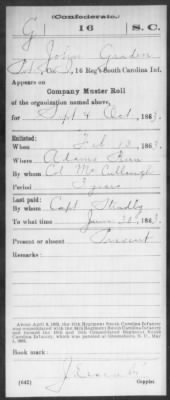 (Confederate.)
G 16 S. C.
John
Co. , 16 Reg't South Carolina Inf.
Appears on
Company Muster Roll
of the organization named above,
for Sept & Oct, 1863.
Enlisted:
When Feb 13, 1863.
Where Adams Run
By whom Col McCullough
Period 3 years
Last paid:
By whom Capt
To what time June 30, 1863.
Present or absent Present
Remarks:
About April 9, 1865, the 16th Regiment South Carolina Infantry
was consolidated with the 24th Regiment South Carolina Infantry
and formed the 16th and 24th Consolidated Regiment South
Carolina Infantry, which was paroled at Greensboro, N. C., May
1, 1865.
Book mark:
(642) Copyist.